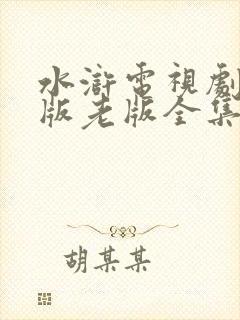 水滸電視劇
版老版全集
胡某某